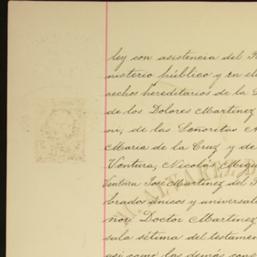 ley con asistencia del
nisterio público y en el
echos hereditarios de la
de los Dolores Martinez
or, de las Señoritas
Maria de la Cruz y de
Ventura, Nicolás
Ventura José Martinez del
brados únicos y universal
ñor Doctor Martinez
sula sétima del testamen
asi como los demás cons